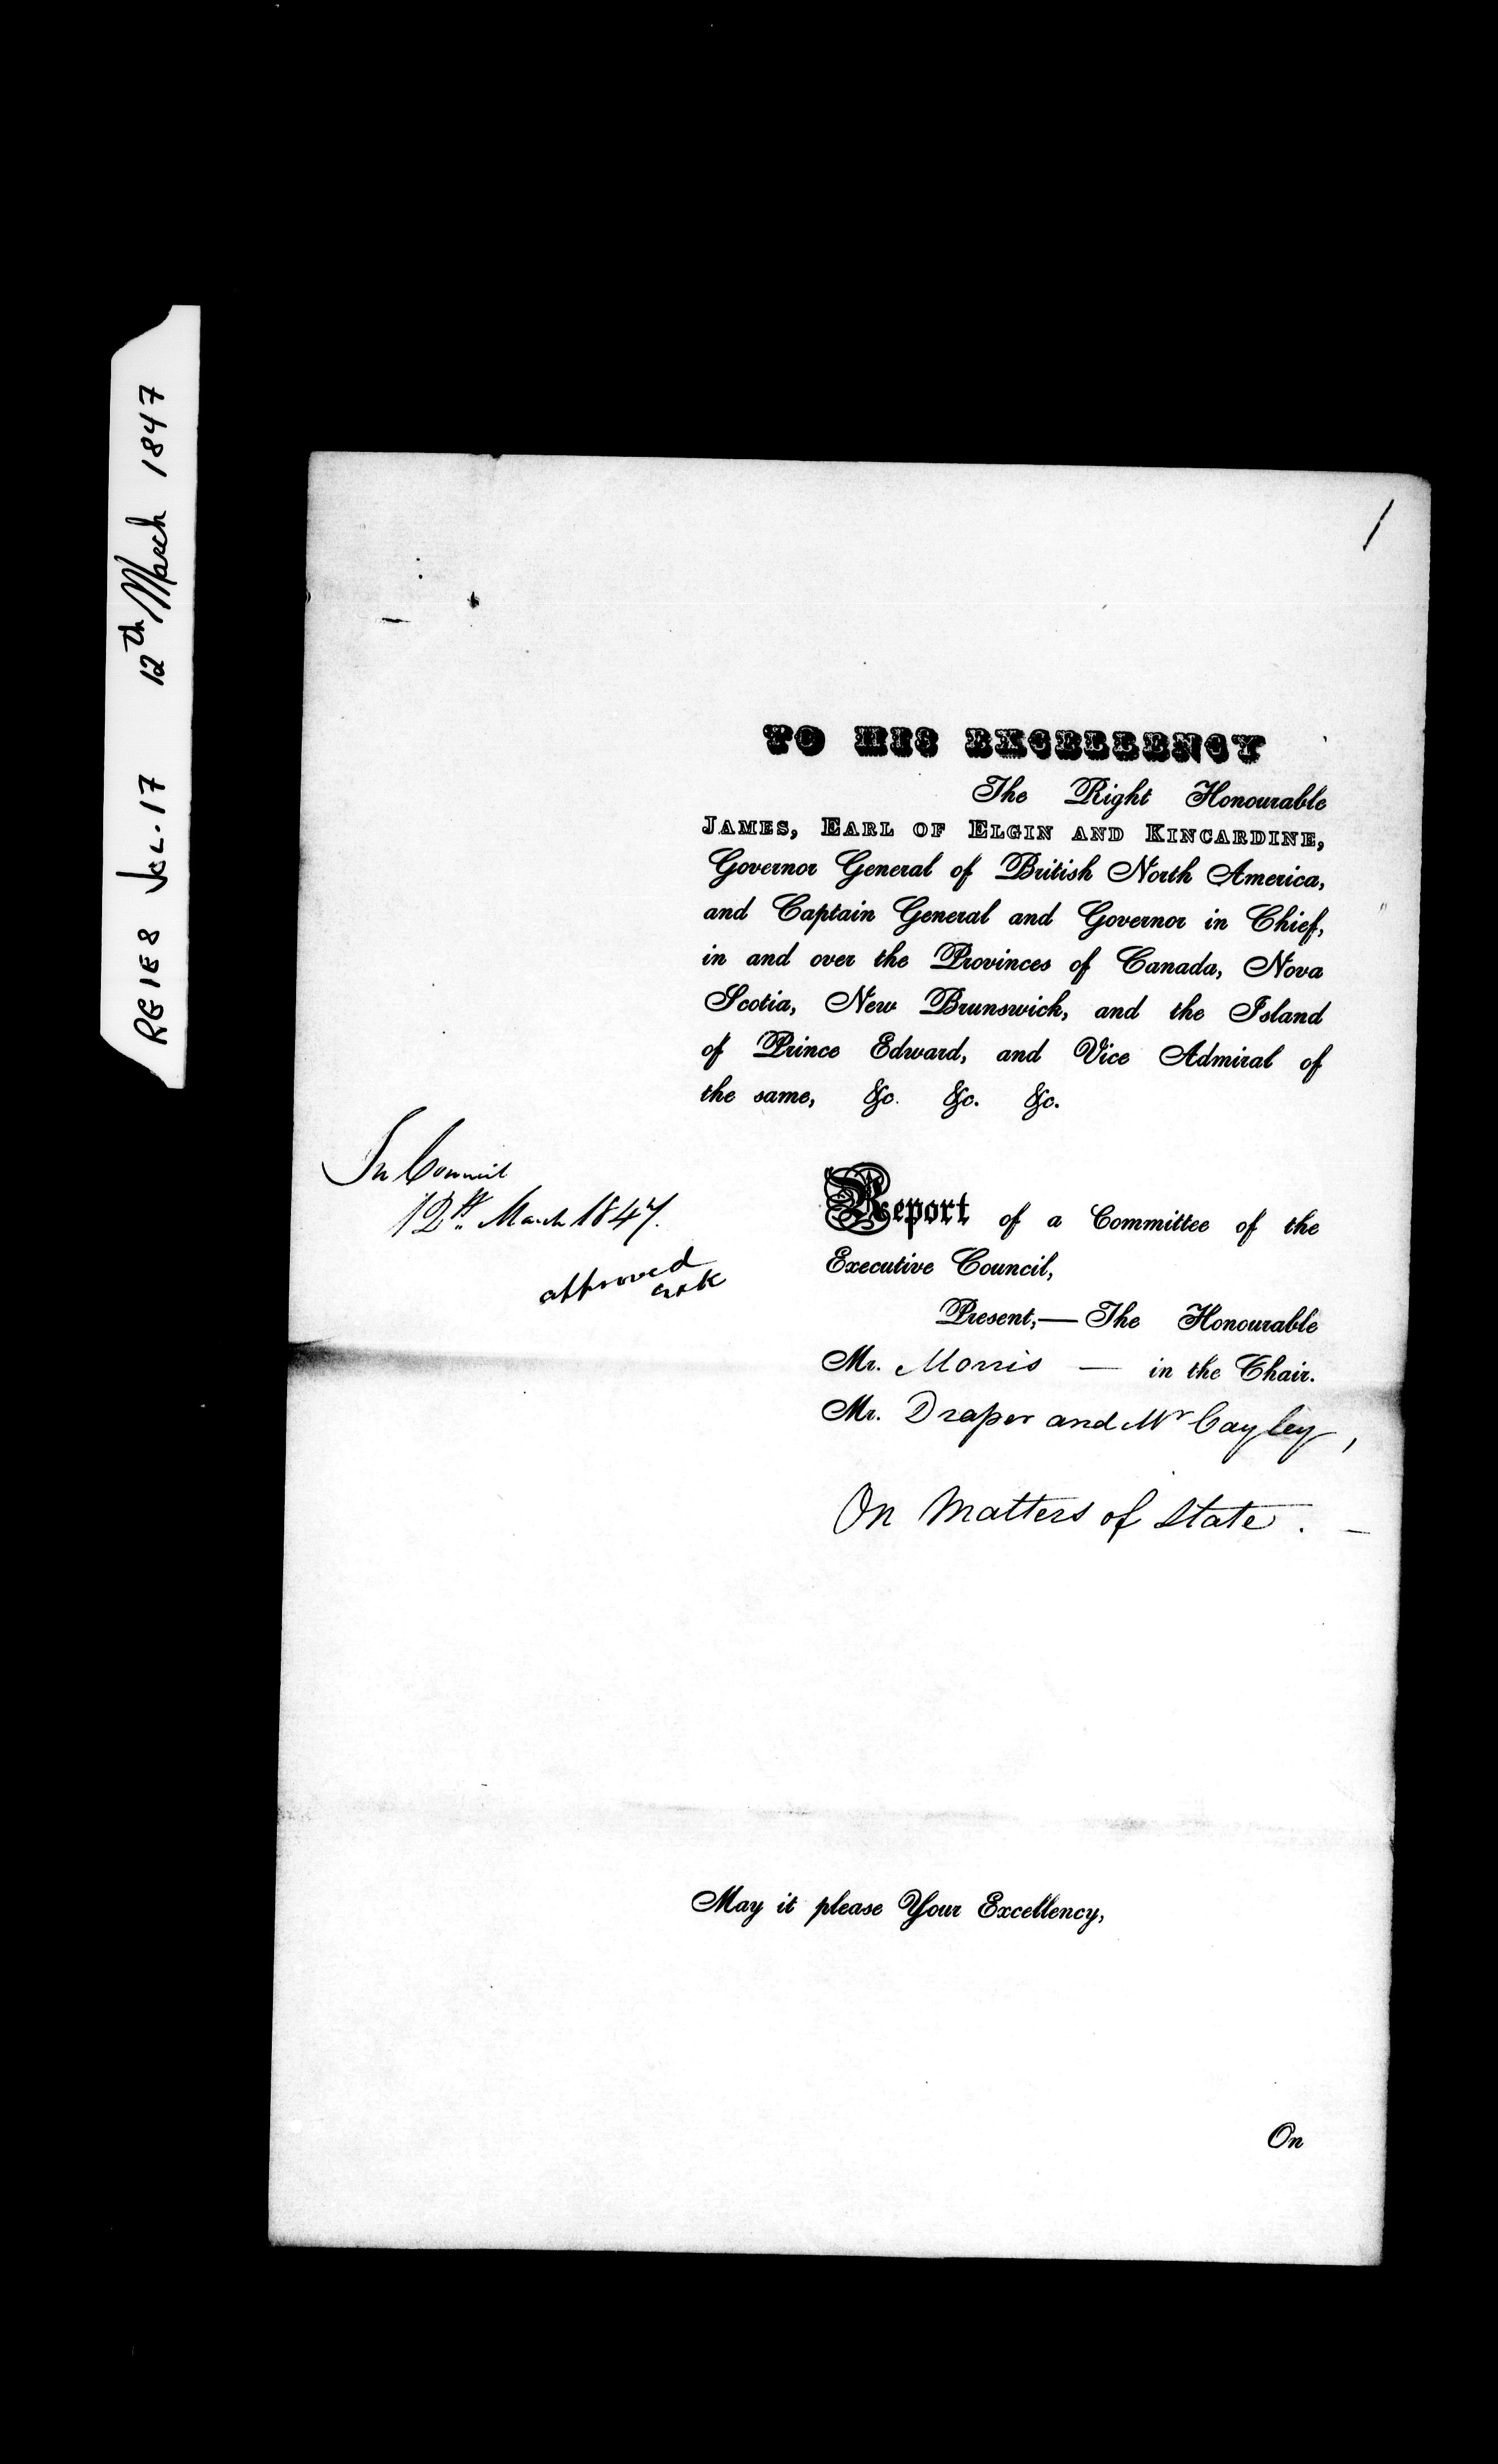 RG 1 E 8 Vol. 17 12th March 1847
1
TO HIS EXCELLENCY
The Right Honourable
JAMES, EARL OF ELGIN AND KINCARDINE,
Governor General of British North America,
and Captain General and Governor in Chief,
in and over the Provinces of Canada, Nova
Scotia, New Brunswick, and the Island
of Prince Edward, and Vice Admiral of
the same, &c. &c. &c.
In Council
12th March 1847.
approved
Report of a Committee of the
Executive Council,
Present,—The Honourable
Mr. Morris — in the Chair.
Mr. Draper and Mr Cayley,
On Matters of State. —
May it please Your Excellency,
On